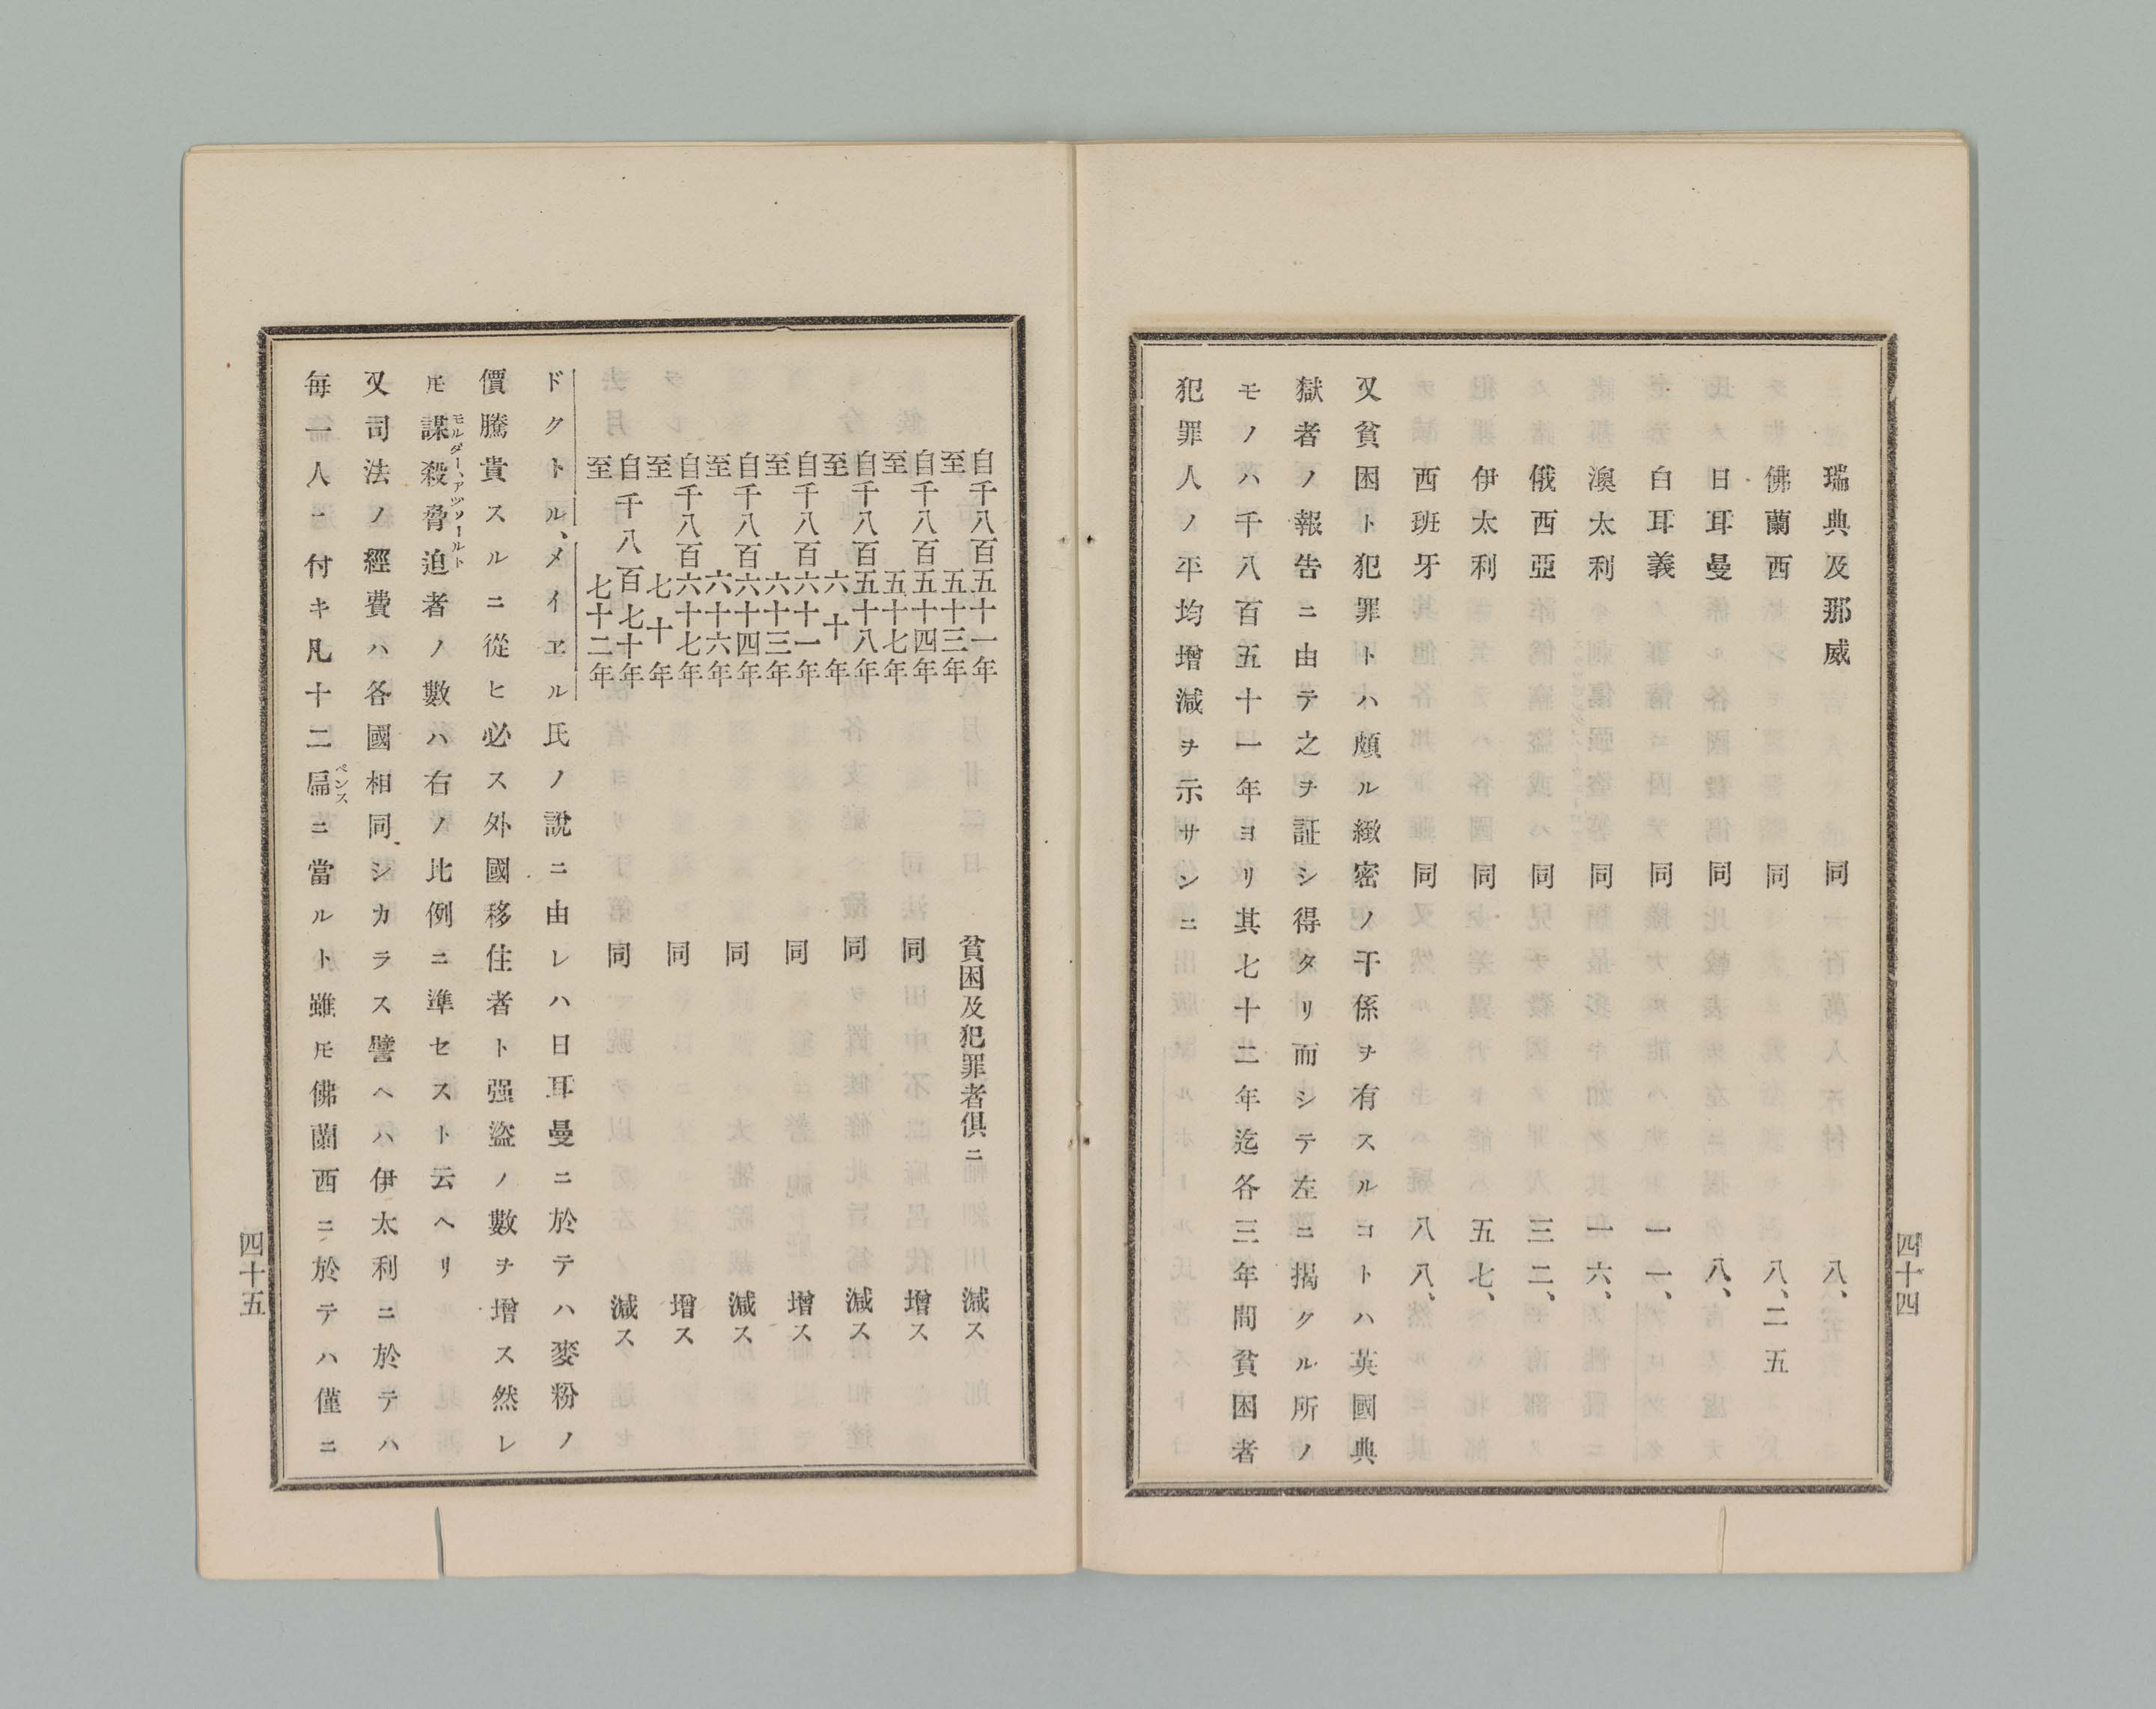 瑞典及那威　同　八、
佛蘭西　同　八、二五
日耳曼　同　八、
白耳義　同　一一、
澳太利　同　一六、
俄西亞　同　三二、
伊太利　同　五七、
西班牙　同　八八、
又貧困ト犯罪トハ頗ル緻密ノ干係ヲ有スルコトハ英國典
獄者ノ報告ニ由テ之ヲ証シ得タリ而シテ左ニ揭クル所ノ
モノハ千八百五十一年ヨリ其七十二年迄各三年間貧困者
犯罪人ノ平均增減ヲ示サンニ
四十四
自千八百五十一年至五十三年　貧困及犯罪者俱ニ　減ス
自千八百五十四年至五十七年　同　增ス
自千八百五十八年至六十年　同　減ス
自千八百六十一年至六十三年　同　增ス
自千八百六十四年至六十六年　同　減ス
自千八百六十七年至七十年　同　增ス
自千八百七十年至七十二年　同　減ス
ドクトル、メイヱル氏ノ說ニ由レハ日耳曼ニ於テハ麥粉ノ
價騰貴スルニ從ヒ必ス外國移住者ト强盜ノ數ヲ增ス然レ
𪜈謀殺脅迫者ノ數ハ右ノ比例ニ準セスト云ヘリ
モルダー、アツソールト
又司法ノ經費ハ各國相同シカラス譬ヘハ伊太利ニ於テハ
每一人ニ付キ凡十二扁ニ當ルト雖𪜈佛蘭西ニ於テハ僅ニ
ペンス
四十五